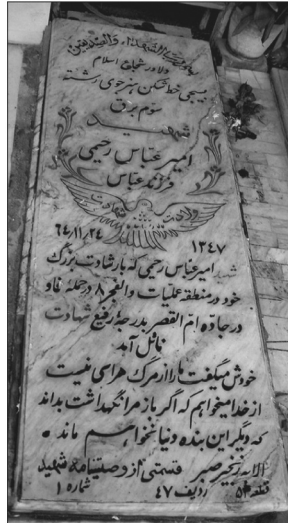 بسم رب الشهداء والصدیقین
دلاور شجاع اسلام
بسیجی خط شکن هنرجوی رشته
سوم برق
شهید
امیر عباس رحیمی
فرزند عباس
ولادت شهادت
۱۳۴۷ ۶۴/۱۱/۲۴
شهید امیر عباس رحیمی که با رشادت بزرگ
خود در منطقه عملیات والفجر ۸ در حمله فاو
در جاده ام القصر بدرجه رفیع شهادت
نائل آمد
خودش میگفت ما را از مرگ هراسی نیست
از خدا میخواهم که اگر باز مرا نگهداشت بداند
که دیگر این بنده دنیا نخواهم ماند
الا به زنجیر صبر قسمتی از وصیتنامه شهید
قطعه ۵۳ ردیف ۴۷ شماره ۱